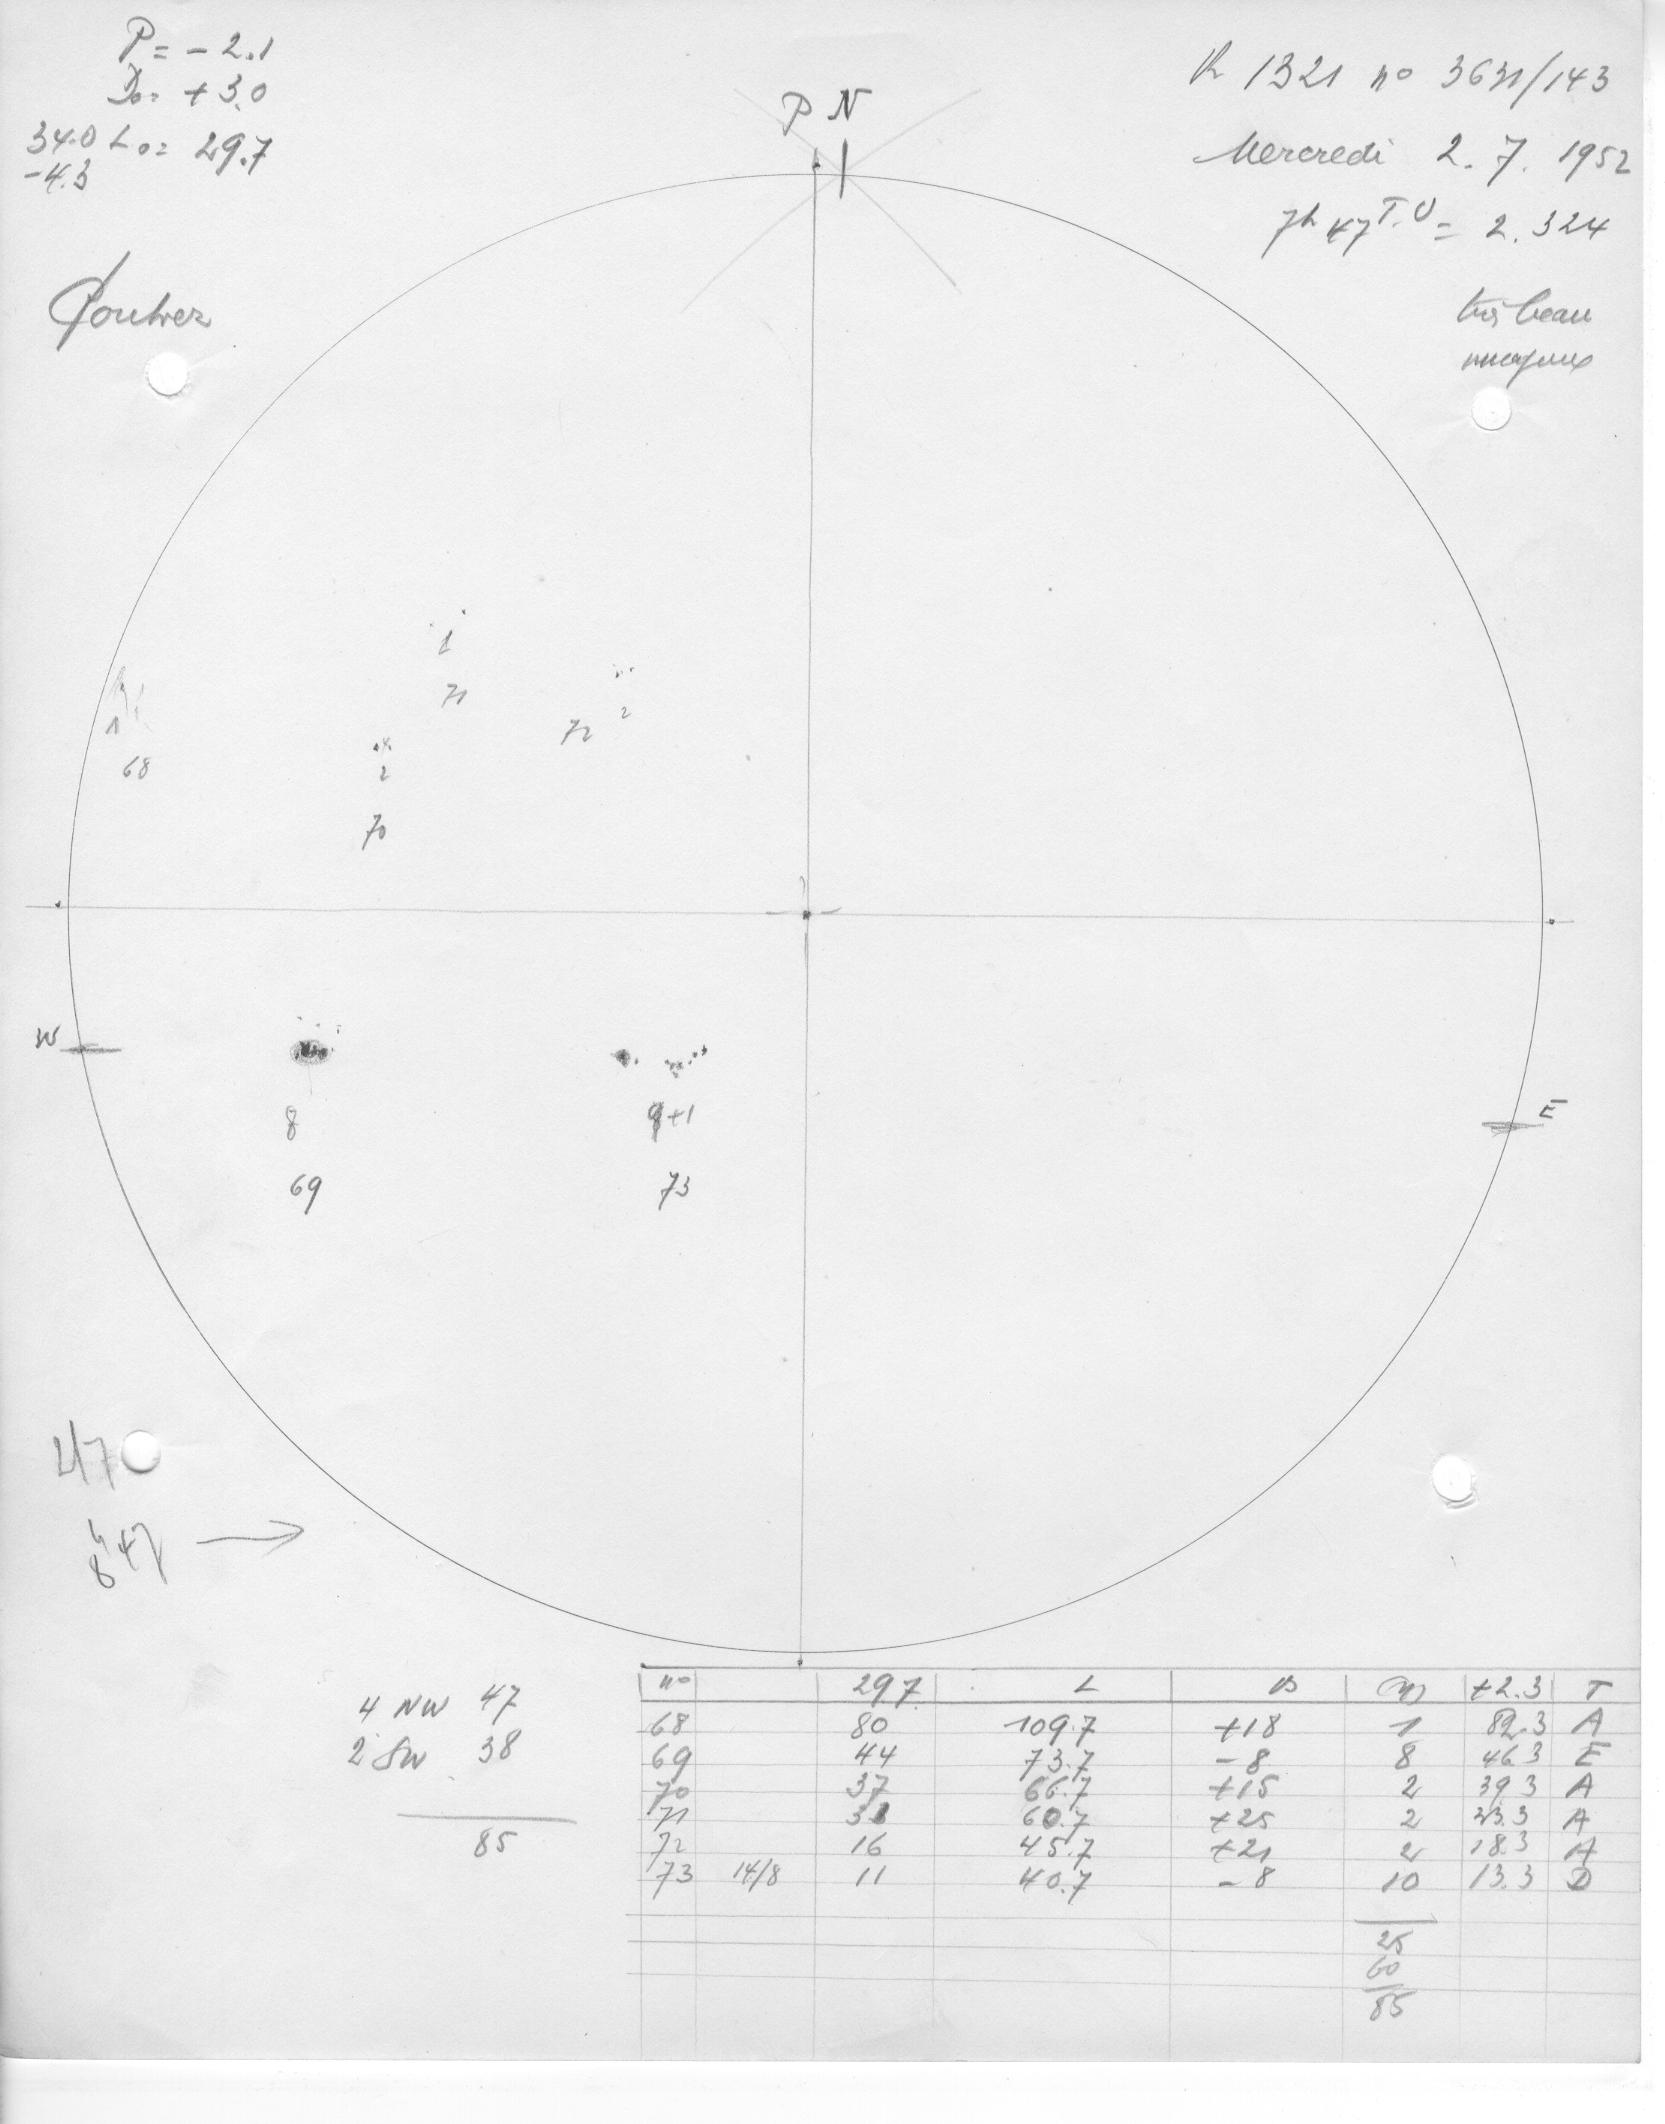 P = - 2.1
Do = + 3.0
34.0 Lo = 29.7
-4.3
R 1321 no 3631/143
Mercredi 2. 7. 1952
7h 47 T.U = 2.324
très beau
nuageux
P N
1
71
2
72
1
68
2
70
W
E
8
69
9+1
73
2/7
8h 47 →
4 NW 47
2 SW 38
85
no 297 L B +2.3 T
68 80 109.7 +18 1 82.3 A
69 44 73.7 -8 8 46.3 E
70 37 66.7 +15 2 39.3 A
71 31 60.7 +25 2 33.3 A
72 16 45.7 +21 2 18.3 A
73 14/8 11 40.7 -8 10 13.3 D
25
60
85